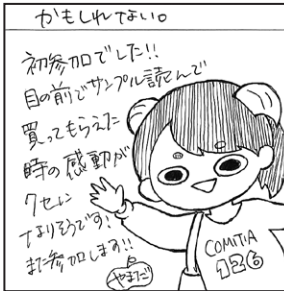 かもしれない。
初参加でした!!
目の前でサンプル読んで
買ってもらえた
時の感動が
クセに
なりそうです!
また参加します!!
やまだ
COMITIA
126